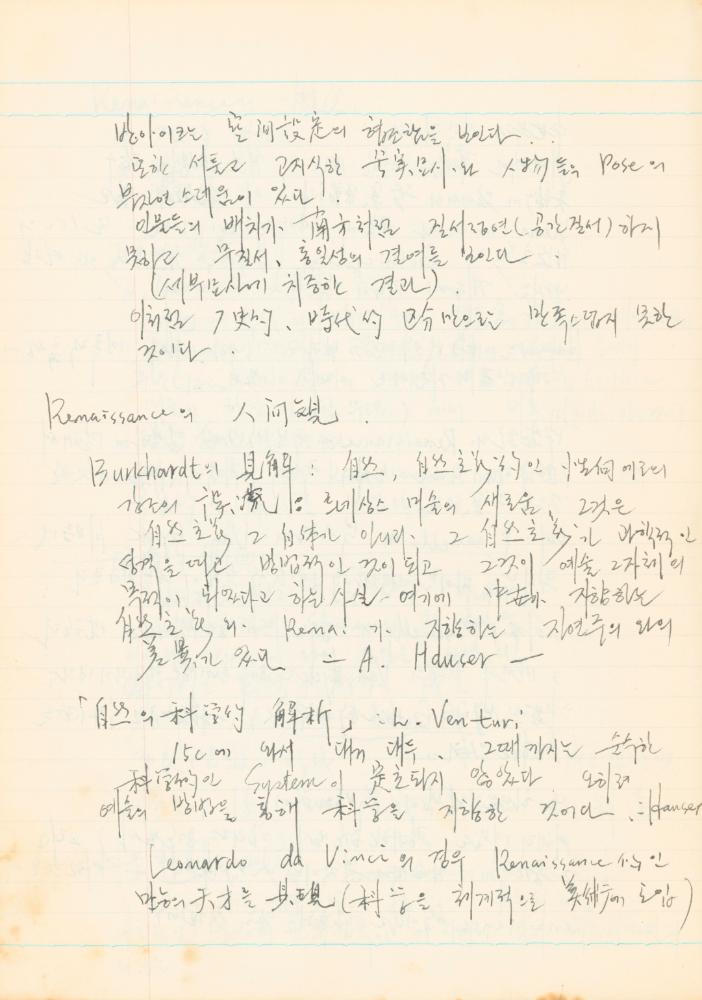 반아이크는 空间設定의 협조함을 보인다.
또한 서툴고 고지식한 写実묘사와 人物들의 Pose의
부자연스러움이 있다.
인물들의 배치가 南方처럼 질서정연(공간질서)하지
못하고 무질서, 통일성의 결여를 보인다.
(세부묘사에 치중한 결과).
이처럼 史的, 時代的 区分만으로는 만족스럽지 못한
것이다.
Renaissance의 人间観.
Burkhardt의 見解 : 自然, 自然主义的인 傾向에로의
강조의 誤 은 르네상스 미술의 새로움, 그것은
自然主義 그 自体가 아니라. 그 自然主義가 과학적인
성격을 띄고 방법적인 것이 되고 그것이 예술 그자체의
목적이 되었다고 하는 사실. 여기에 中世가 지향하는
自然主義와 Rena.가 지향하는 자연주의와의
差異가 있다 — A. Hauser —
「自然의 科学的 解析」: L. Venturi
15C에 와서 대두. 그때까지는 순수한
科学的인 System이 定立되지 않았다. 오히려
예술의 방법을 통해 科学을 지향한 것이다. : Hauser
Leonardo da Vinci의 경우 Renaissance 的인
만능의 天才를 具現(科学을 체계적으로 美術에 도입)